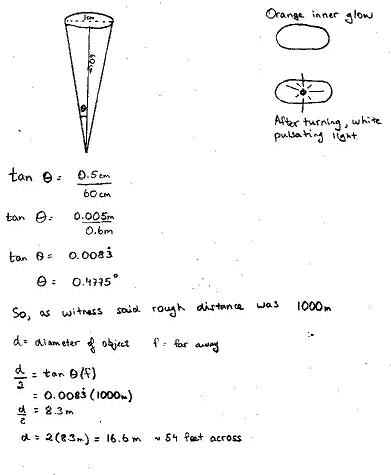 1cm
60cm
θ
Orange inner glow
After turning, white
pulsating light
tan θ = 0.5cm
60cm
tan θ = 0.005m
0.6m
tan θ = 0.0083̇
θ = 0.4775°
So, as witness said rough distance was 1000m
d = diameter of object f = far away
d/2 = tan θ (f)
= 0.0083̇ (1000m)
d/2 = 8.3m
d = 2(8.3m) = 16.6m ≈ 54 feet across